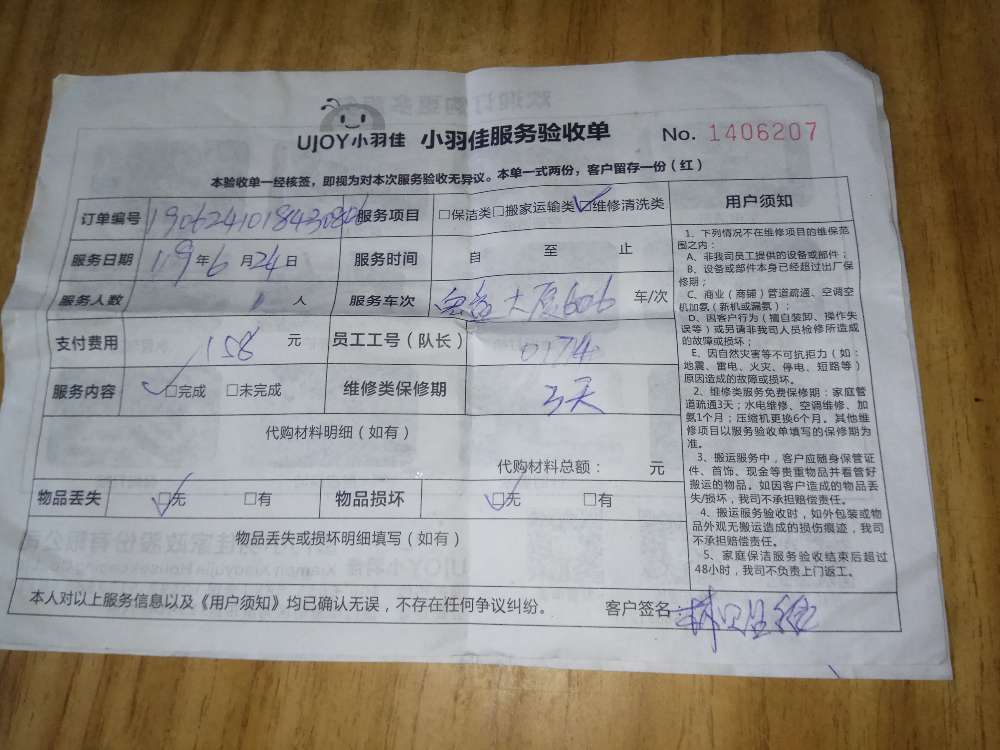 UJOY小羽佳 小羽佳服务验收单 No. 1406207
本验收单一经核签，即视为对本次服务验收无异议。本单一式两份，客户留存一份（红）
订单编号 服务项目 □保洁类□搬家运输类□维修清洗类
服务日期 119年6月24日 服务时间 自 至 止
服务人数 1 人 服务车次 大厦606 车/次
支付费用 158 元 员工工号（队长） 0174
服务内容 □完成 □未完成 维修类保修期 3天
代购材料明细（如有）
代购材料总额： 元
物品丢失 □无 □有 物品损坏 □无 □有
物品丢失或损坏明细填写（如有）
本人对以上服务信息以及《用户须知》均已确认无误，不存在任何争议纠纷。 客户签名
用户须知
1、下列情况不在维修项目的维保范
围之内：
A、非我司员工提供的设备或部件；
B、设备或部件本身已经超过出厂保
修期；
C、商业（商铺）管道疏通、空调空
机加氨（新机或漏氨）；
D、因客户行为（擅自装卸、操作失
误等）或另请非我司人员检修所造成
的故障或损坏；
E、因自然灾害等不可抗拒力（如：
地震、雷电、火灾、停电、短路等）
原因造成的故障或损坏。
2、维修类服务免费保修期：家庭管
道疏通3天；水电维修、空调维修、加
氨1个月；压缩机更换6个月。其他维
修项目以服务验收单填写的保修期为
准。
3、搬运服务中，客户应随身保管证
件、首饰、现金等贵重物品并看管好
搬运的物品。如因客户造成的物品丢
失/损坏，我司不承担赔偿责任。
4、搬运服务验收时，如外包装或物
品外观无搬运造成的损伤痕迹，我司
不承担赔偿责任。
5、家庭保洁服务验收结束后超过
48小时，我司不负责上门返工。